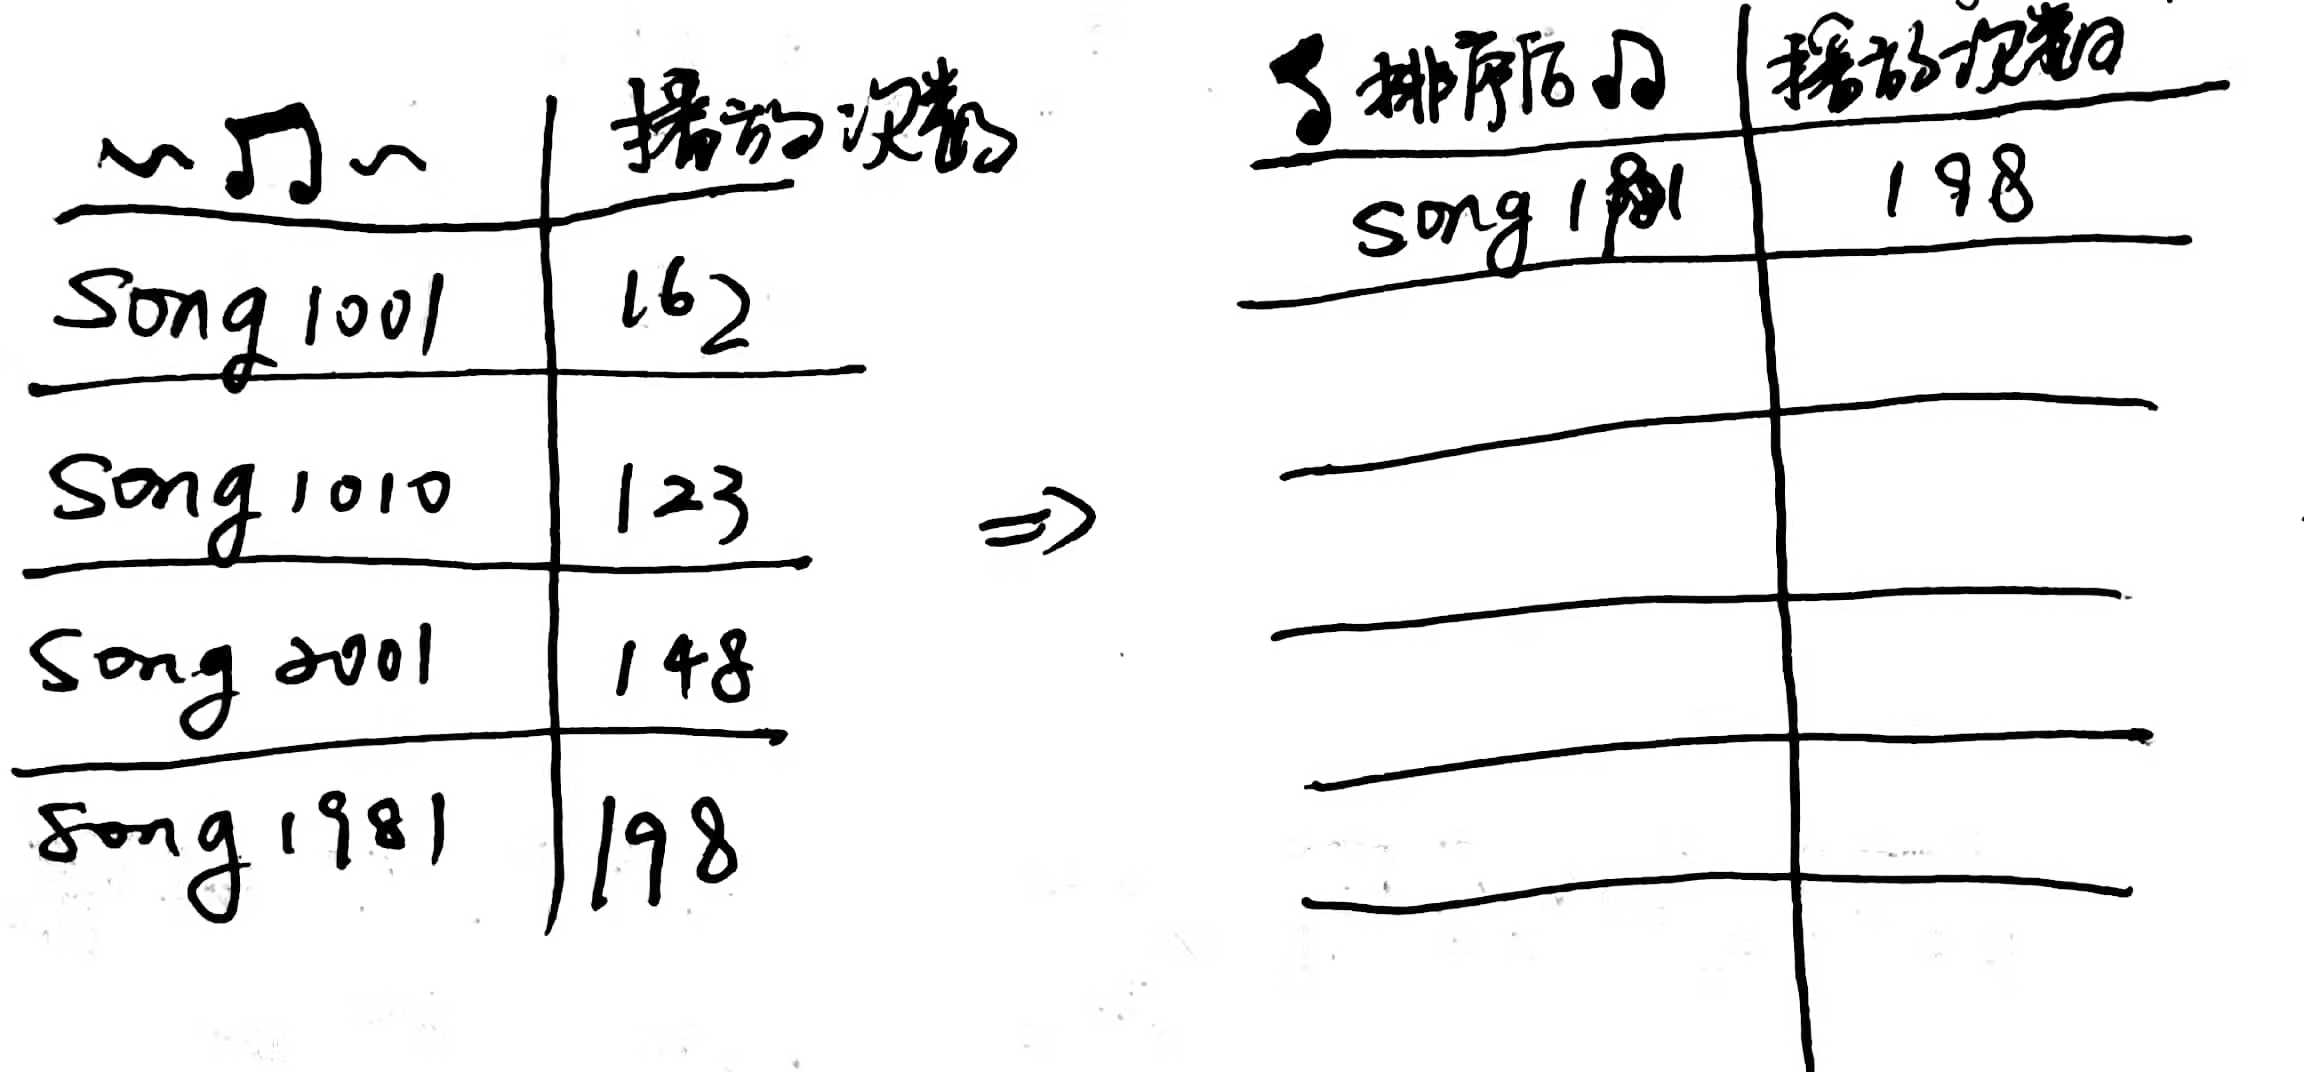 ~♫~ 播放次数
Song 1001 162
Song 1010 123
Song 2001 148
Song 1981 198
⇒
排序后♫ 播放次数
song 1981 198